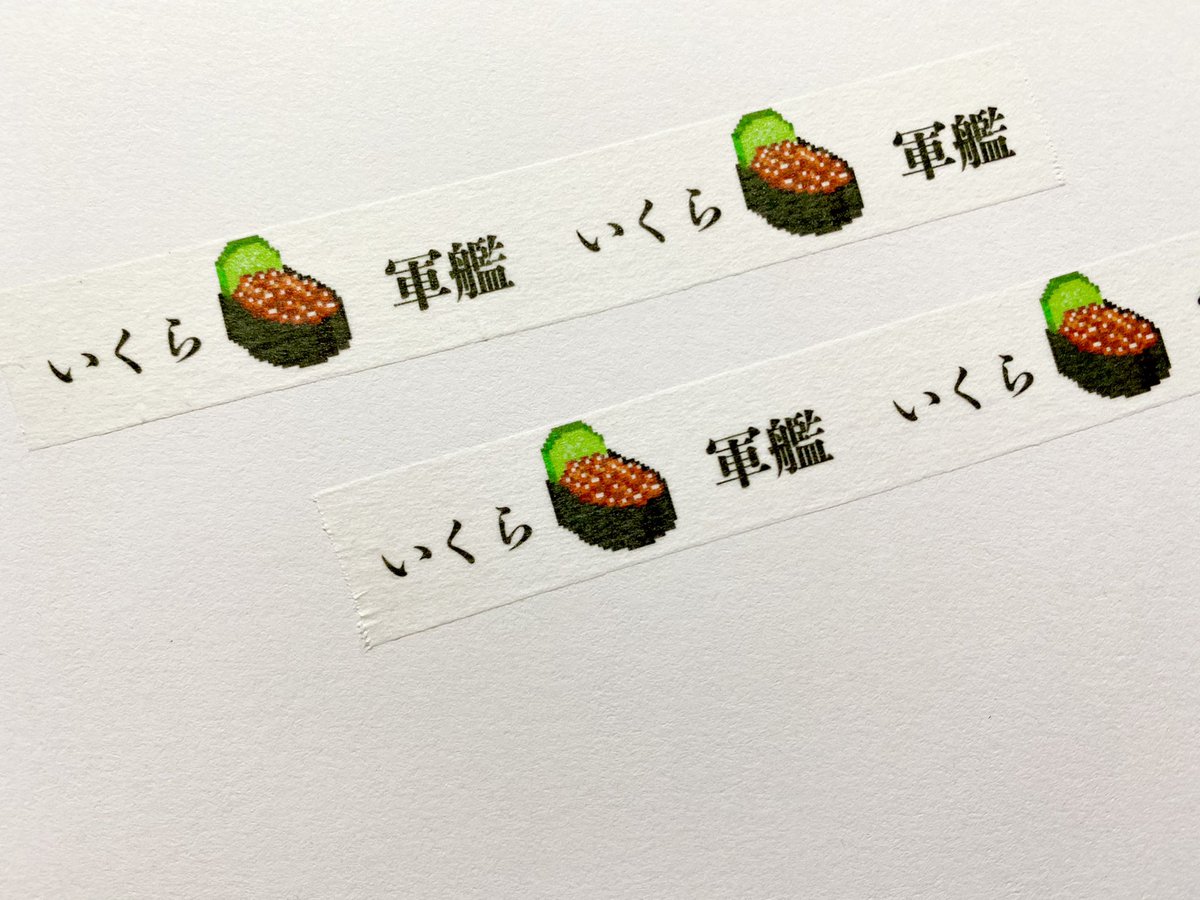 いくら 軍艦 いくら 軍艦
いくら 軍艦 いくら